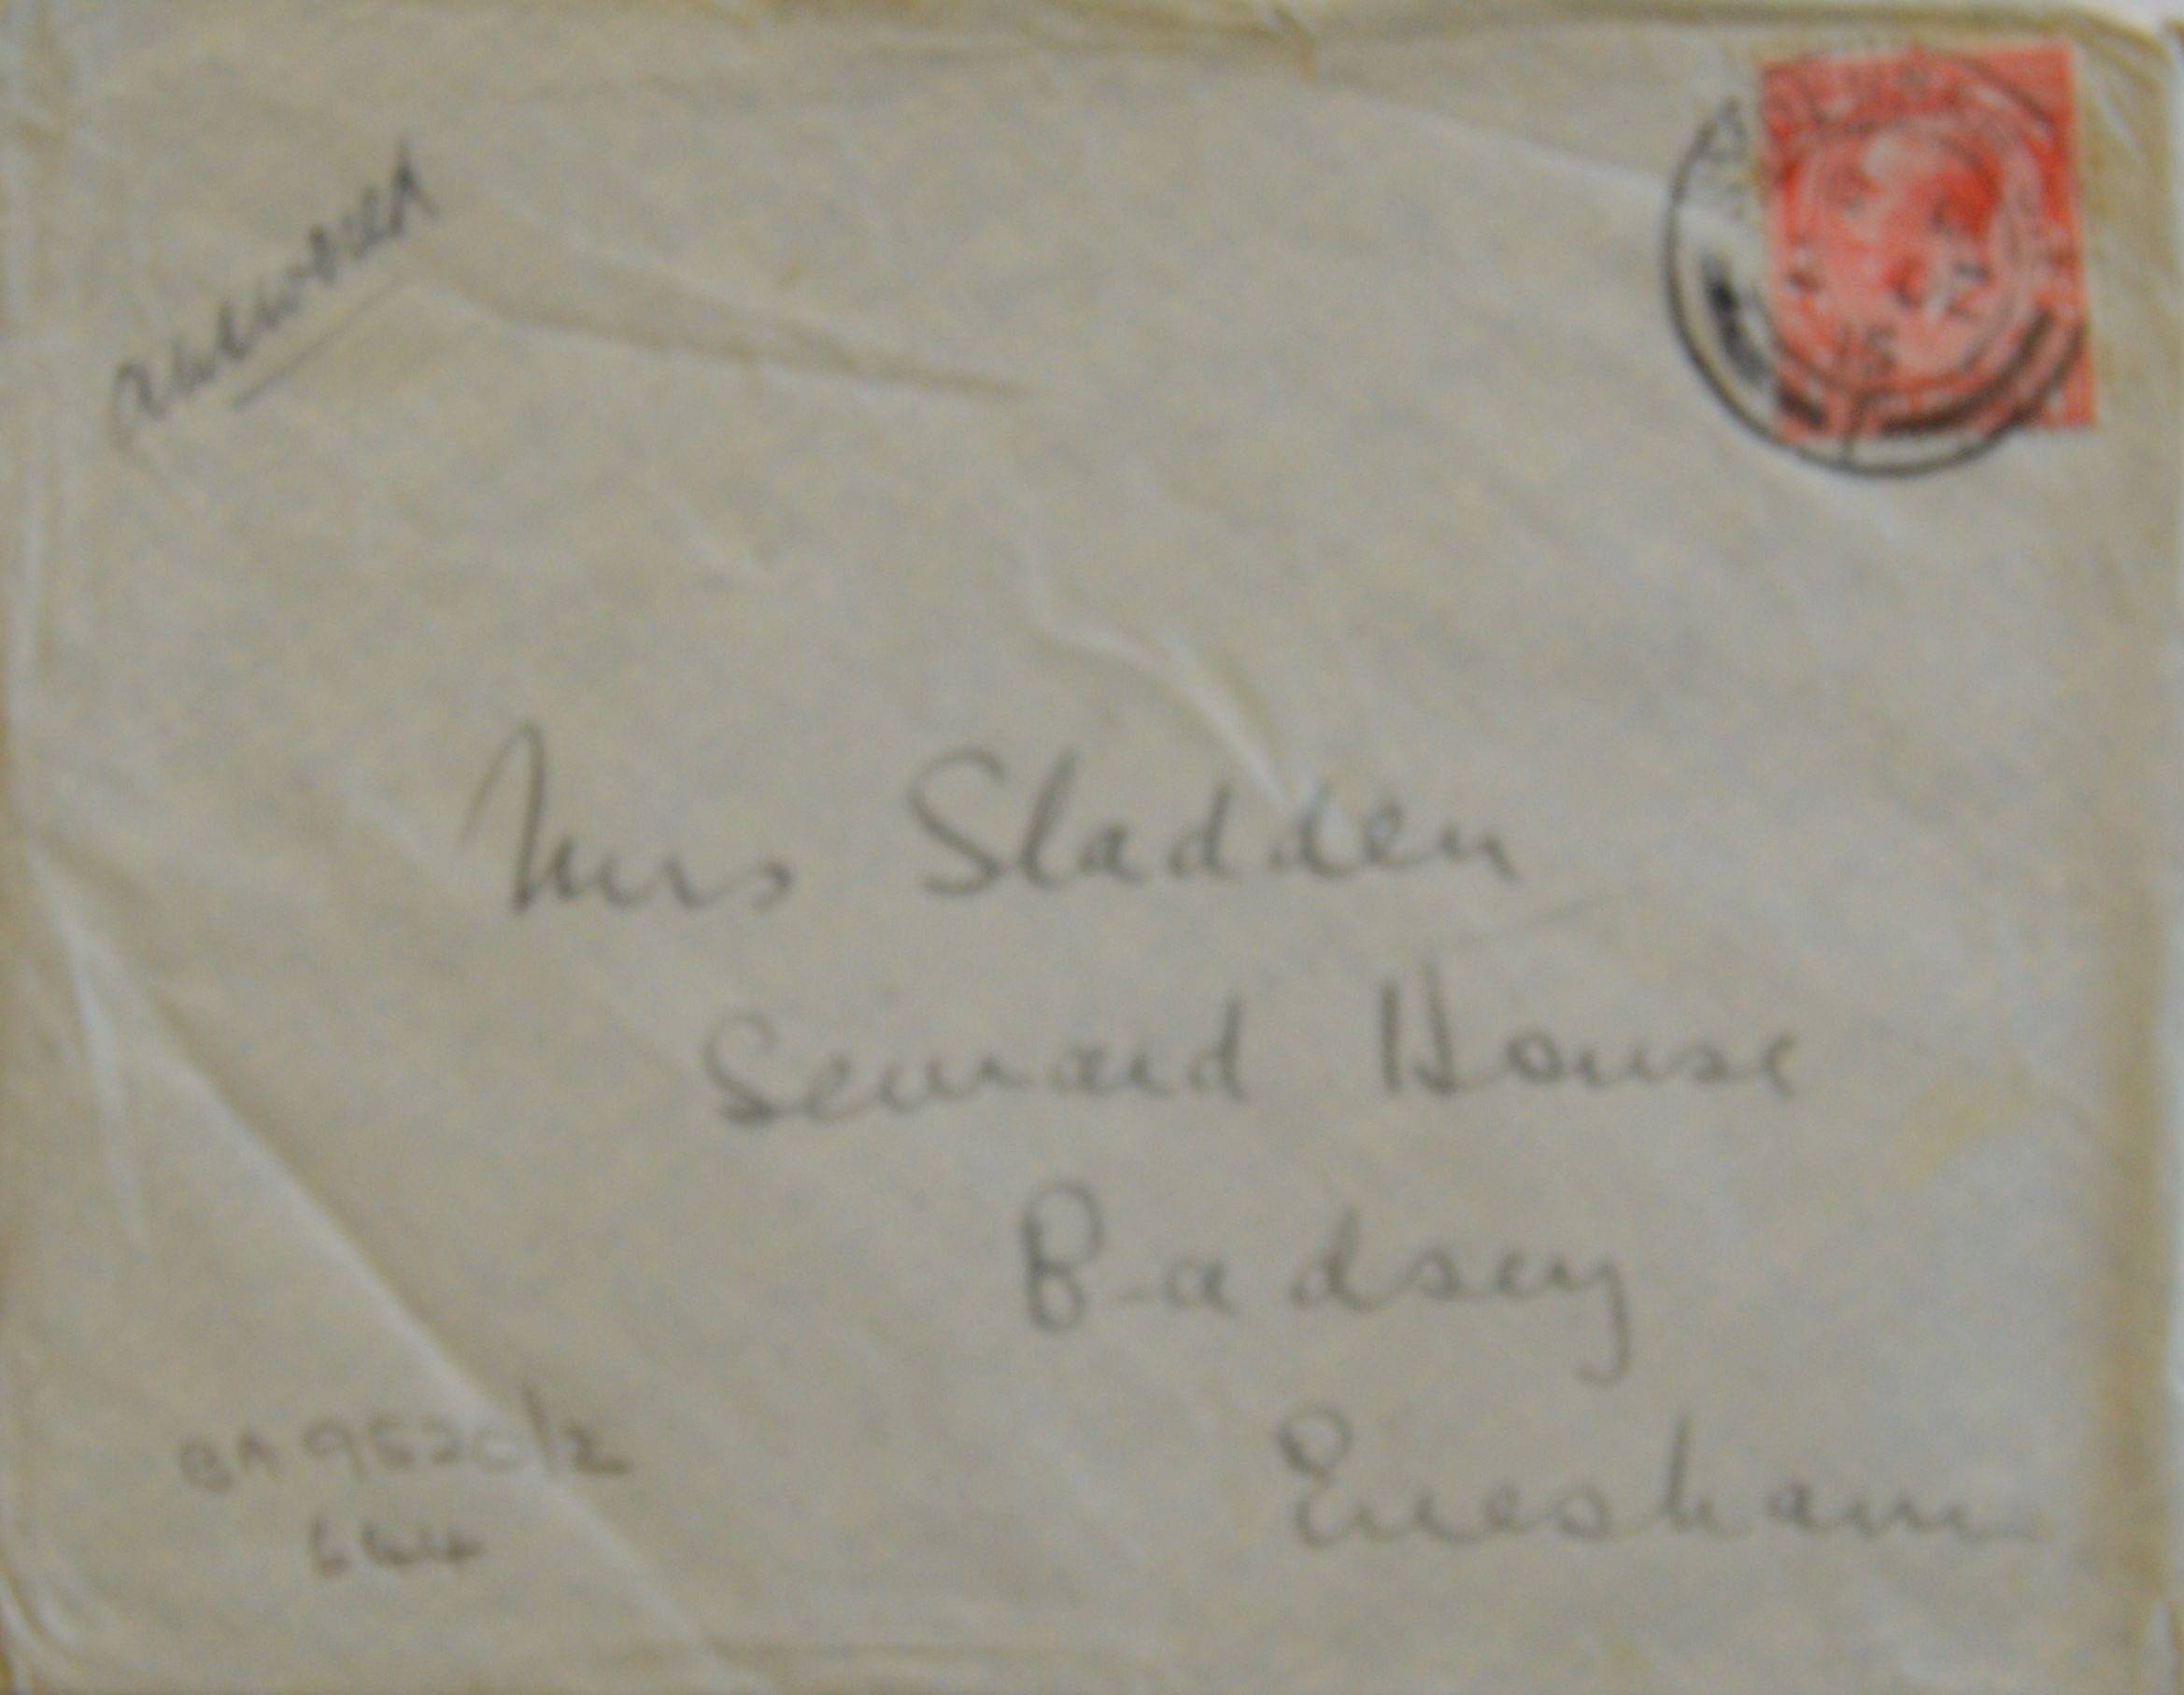 answered
Mrs Sladden
Seward House
Badsey
Evesham
BA 9520/2
644